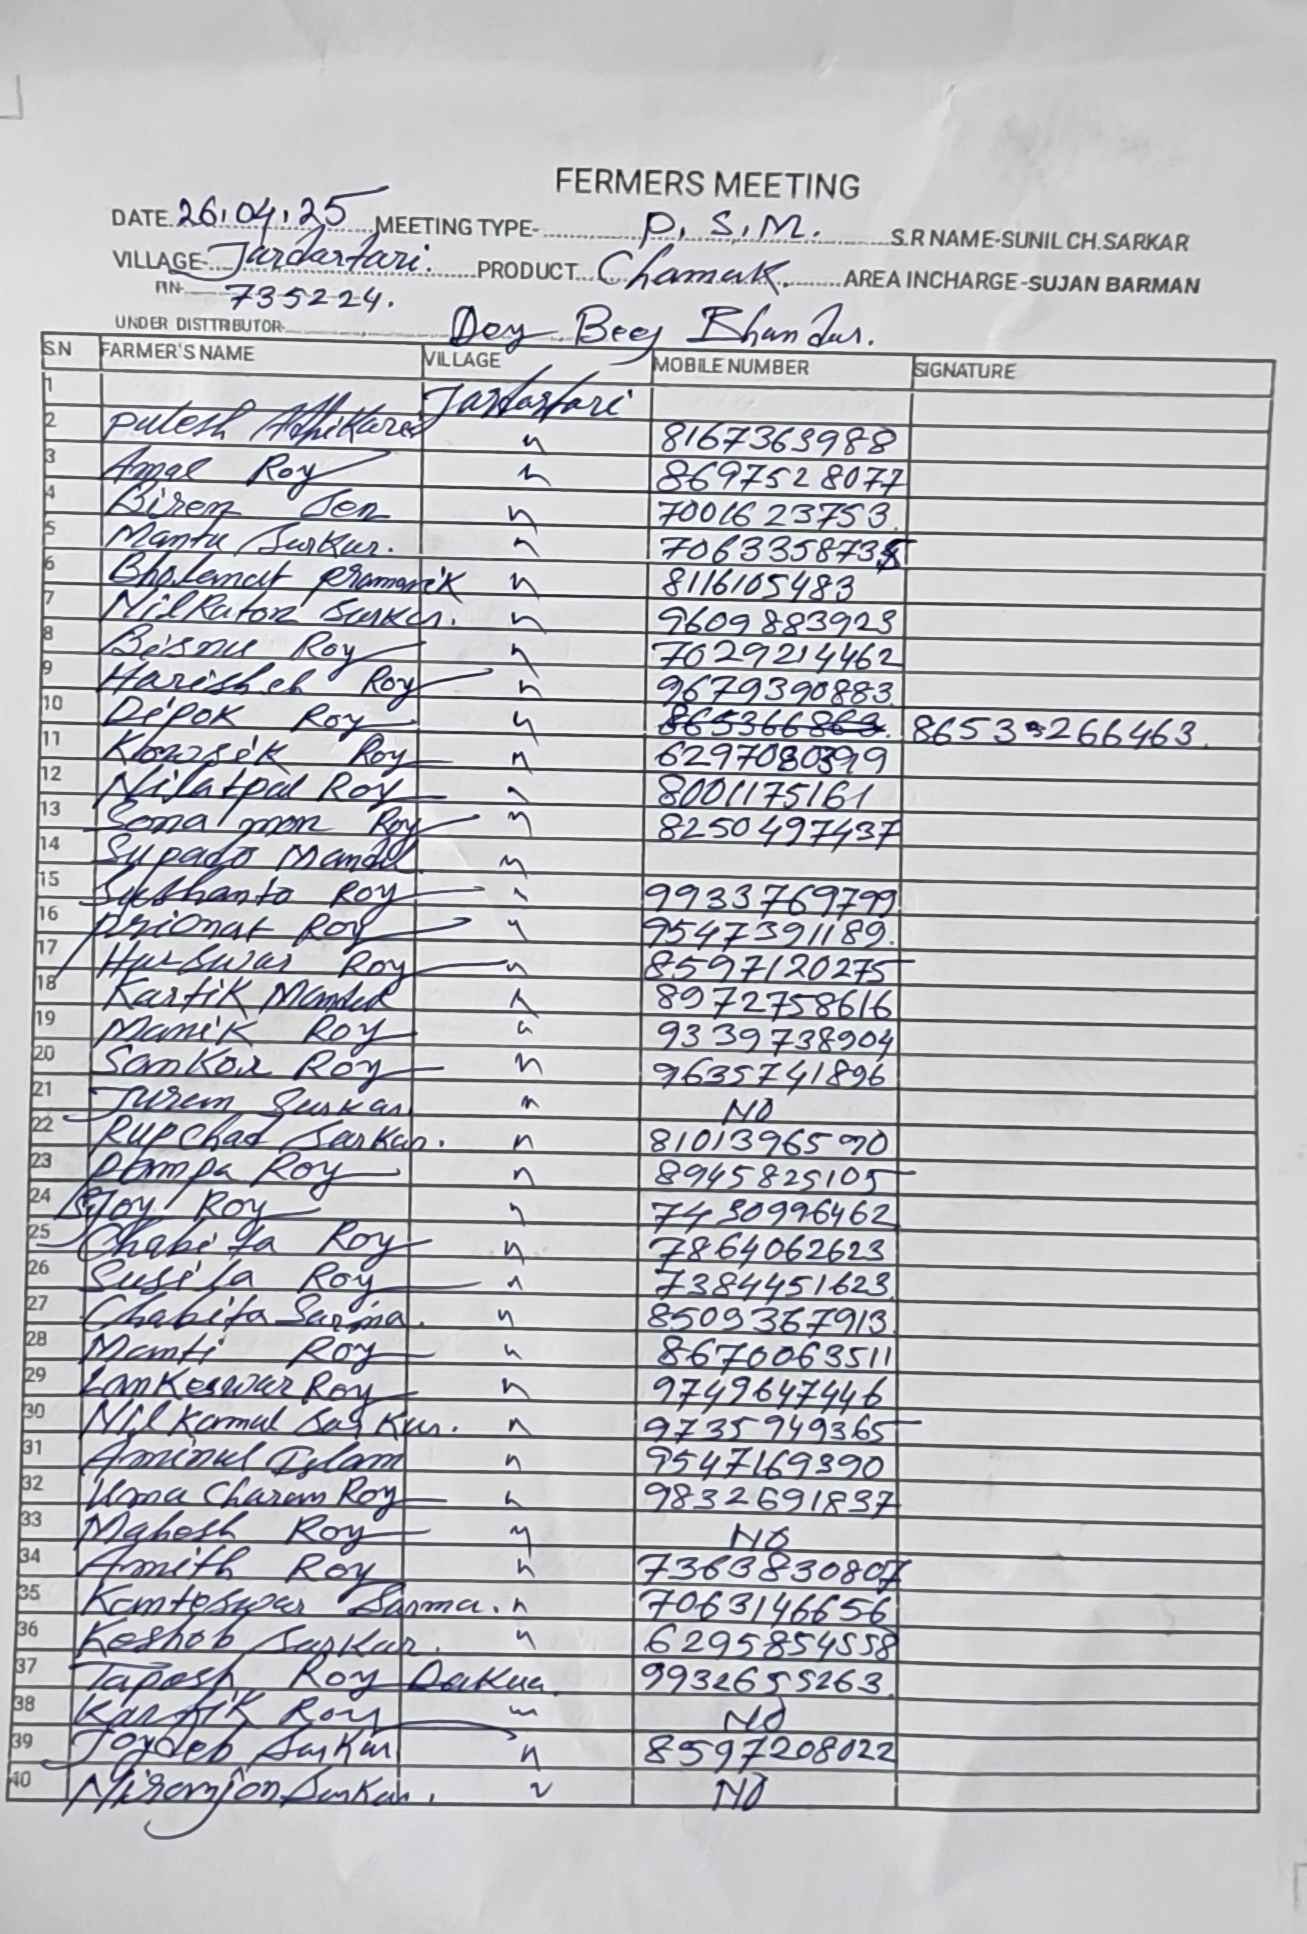 FERMERS MEETING
DATE. 26.04.25 MEETING TYPE- P.S.M. S.R NAME-SUNIL CH.SARKAR
VILLAGE- Jardartari. PRODUCT Chamak. AREA INCHARGE-SUJAN BARMAN
PIN- 735224.
UNDER DISTTRIBUTOR- Dey Beej Bhandar.
SN FARMER'S NAME VILLAGE MOBILE NUMBER SIGNATURE
1 Jardartari
2 Pulesh Adhikared " 8167363988
3 Amal Roy " 8697528077
4 Biren Sen " 7001623753
5 Mantu Sarkar. " 706335873
6 Bholanat pramanik " 8116105483
7 Nil Raton Sarkar. " 9609883923
8 Bisnu Roy " 7029214462
9 Harisheh Roy " 9679390883
10 Dipok Roy " 865366863. 8653 266463.
11 Kowsik Roy " 6297080399
12 Nilatpal Roy " 8001175161
13 Sona mon Roy " 8250497437
14 Supado Mandal "
15 Sushanto Roy " 9933769799
16 Prionat Roy " 9547391189.
17 Harswar Roy " 8597120275
18 Kartik Mandal " 8972758616
19 Manik Roy " 9339738904
20 Sankar Roy " 9635741896
21 Juren Sarkar " NO
22 Rupchad Sarkar. " 8101396590
23 Pampa Roy " 8945825105
24 Bijoy Roy " 7430996462
25 Chabita Roy " 7864062623
26 Susila Roy " 7384451623
27 Chabita Sarma. " 8509367913
28 Manti Roy " 8670063511
29 Lankeswar Roy " 9749647446
30 Nil Kamal Sarkar. " 9735949365
31 Aminul Islam " 9547169390
32 Uma Charan Roy " 9832691837
33 Mahesh Roy " NO
34 Amith Roy " 7363830807
35 Kamteswar Sarma. " 7063146656
36 Keshob Sarkar. " 6295854558
37 Tapash Roy Dakua. 9932655263.
38 Kartik Roy " NO
39 Joydeb Sarkar " 8597208022
40 Niranjon Sarkar. " NO